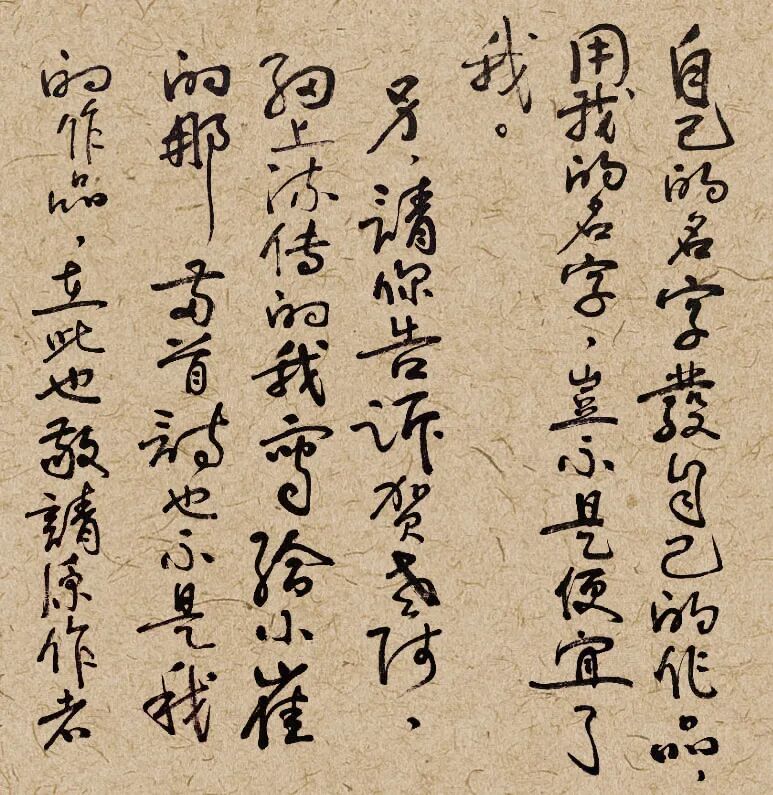 自己的名字發自己的作品，
用我的名字，豈不是便宜了
我。
另，請你告訴贺老师，
網上流傳的我寫給小崔
的那兩首詩也不是我
的作品，在此也敬請原作者